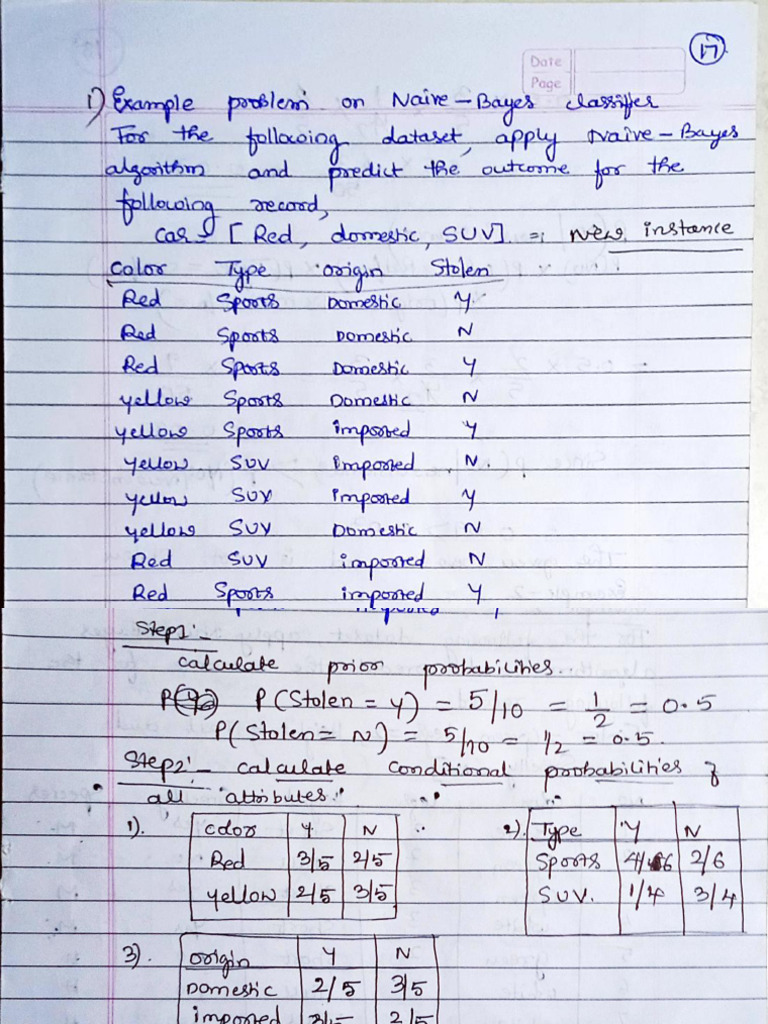 17
Date
Page
1) Example problem on Naive-Bayes classifier
For the following dataset, apply Naive-Bayes
algorithm and predict the outcome for the
following record,
car - [Red, domestic, SUV] => New instance
color Type origin Stolen
Red Sports Domestic Y
Red Sports Domestic N
Red Sports Domestic Y
yellow Sports Domestic N
yellow Sports imported Y
yellow SUV imported N
yellow SUV imported Y
yellow SUV Domestic N
Red SUV imported N
Red Sports imported Y
Step1:
calculate prior probabilities.
P P(Stolen = Y) = 5/10 = 1/2 = 0.5
P(Stolen = N) = 5/10 = 1/2 = 0.5.
Step2:- calculate conditional probabilities of
all attributes.
1). color Y N
Red 3/5 2/5
yellow 2/5 3/5
2). Type Y N
Sports 4/6 2/6
SUV. 1/4 3/4
3). origin Y N
Domestic 2/5 3/5
imported 3/5 2/5